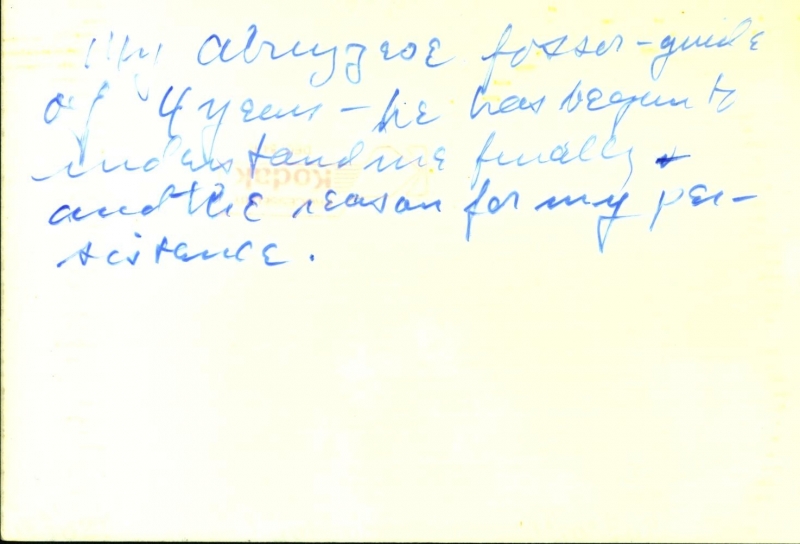 My Abruzzese fossor-guide
of 4 years - he has begun to
understand me finally &
and the reason for my per-
sistance.
Kodak